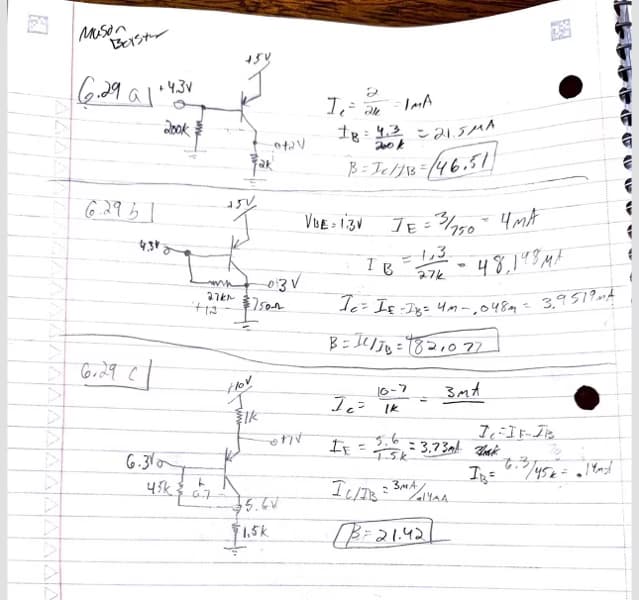 Mason
6.29 a)
+5V
+4.3V
200k
0+2V
2k
Ic = 2/2k = 1MA
IB = 4.3/200k = 21.5MA
B = Ic/IB = 46.51
6.29 b)
+5V
4.3V
27kΩ
0 3V
750Ω
VBE = 1.3V IE = 3/750 = 4MA
IB = 1.3/27k = 48.148MA
Ic = IE - IB = 4m - .048m = 3.9519mA
B = Ic/IB = 82.077
6.29 c)
+10V
1k
0+7V
6.3V
45k
5.6V
1.5k
Ic = 10-7/1k = 3MA
IE = 5.6/1.5k = 3.73mA
Ic = IE - IB
IB = 6.3/45k = .14mA
Ic/IB = 3MA/.14MA
B = 21.42